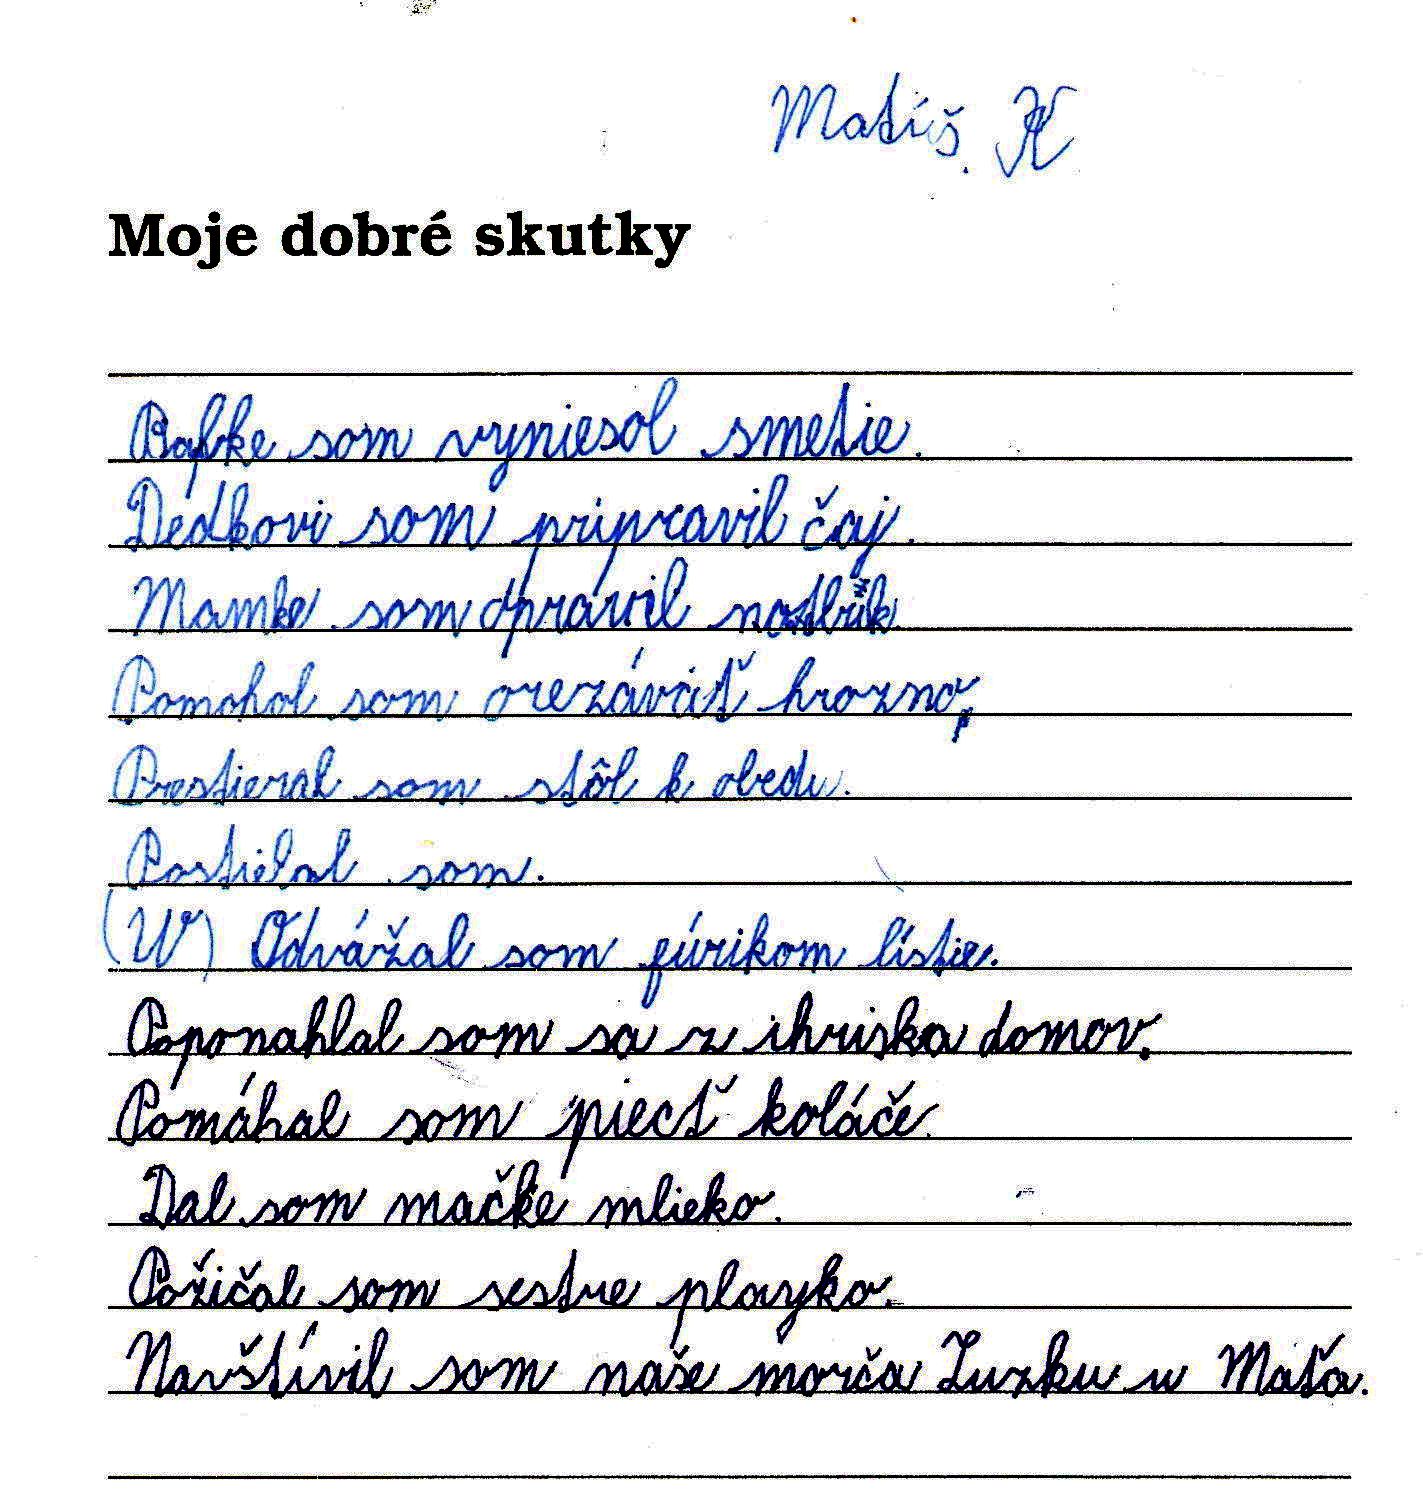 Matúš. K
Moje dobré skutky
Babke som vyniesol smetie.
Dedkovi som pripravil čaj.
Mamke som opravil
Pomohol som orezávať hrozno.
Prestieral som stôl k obedu.
Postielal som.
(U) Odvážal som fúrikom lístie.
Poponahlal som sa z ihriska domov.
Pomáhal som piecť koláče.
Dal som mačke mlieko.
Požičal som sestre playko.
Navštívil som naše morča Zuzku u Maťa.